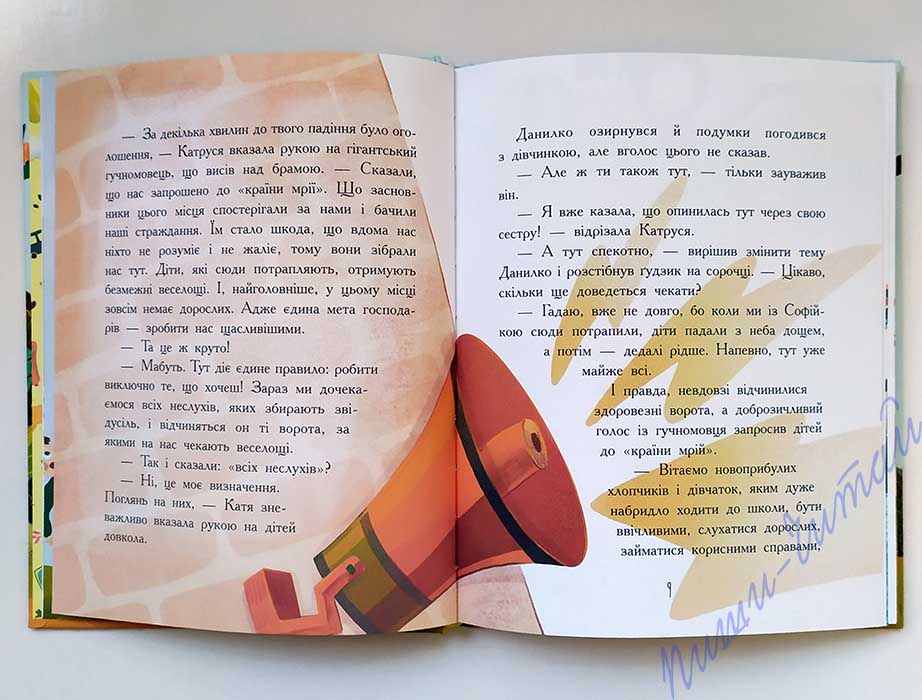 — За декілька хвилин до твого падіння було ого-
лошення, — Катруся вказала рукою на гігантський
гучномовець, що висів над брамою. — Сказали,
що нас запрошено до «країни мрії». Що заснов-
ники цього місця спостерігали за нами і бачили
наші страждання. Їм стало шкода, що вдома нас
ніхто не розуміє і не жаліє, тому вони зібрали
нас тут. Діти, які сюди потрапляють, отримують
безмежні веселощі. І, найголовніше, у цьому місці
зовсім немає дорослих. Адже єдина мета господа-
рів — зробити нас щасливішими.
— Та це ж круто!
— Мабуть. Тут діє єдине правило: робити
виключно те, що хочеш! Зараз ми дочека-
ємося всіх неслухів, яких збирають зві-
дусіль, і відчиняться он ті ворота, за
якими на нас чекають веселощі.
— Так і сказали: «всіх неслухів»?
— Ні, це моє визначення.
Поглянь на них, — Катя зне-
важливо вказала рукою на дітей
довкола.
Данилко озирнувся й подумки погодився
з дівчинкою, але вголос цього не сказав.
— Але ж ти також тут, — тільки зауважив
він.
— Я вже казала, що опинилась тут через свою
сестру! — відрізала Катруся.
— А тут спекотно, — вирішив змінити тему
Данилко і розстібнув ґудзик на сорочці. — Цікаво,
скільки ще доведеться чекати?
— Гадаю, вже не довго, бо коли ми із Софій-
кою сюди потрапили, діти падали з неба дощем,
а потім — дедалі рідше. Напевно, тут уже
майже всі.
І правда, невдовзі відчинилися
здоровезні ворота, а доброзичливий
голос із гучномовця запросив дітей
до «країни мрій».
— Вітаємо новоприбулих
хлопчиків і дівчаток, яким дуже
набридло ходити до школи, бути
ввічливими, слухатися дорослих,
займатися корисними справами,
9
пиши-читай